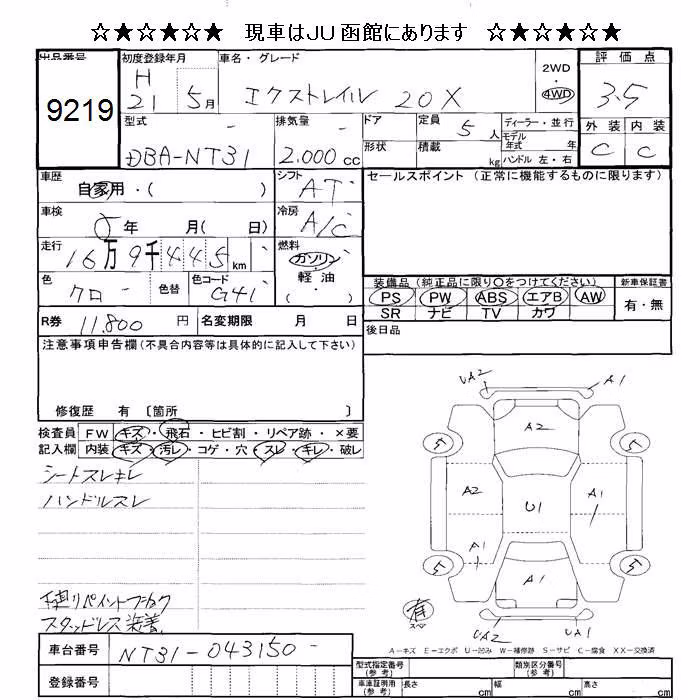 ☆★☆★☆★☆ 現車はJU函館にあります ☆★☆★☆★☆
出品番号 初度登録年月 車名・グレード 2WD 評価点
9219 H 21 5月 エクストレイル 20X 4WD 3.5
型式 排気量 ドア 定員 5人 ディーラー・並行 外装 内装
DBA-NT31 2.000cc 形状 積載 kg モデル年式 年 C C
ハンドル 左・右
車歴 シフト セールスポイント(正常に機能するものに限ります)
自家用・( ) AT
車検 冷房
年 月( 日) A/C
走行 16万9千445km 燃料
ガソリン
色 色替 色コード 軽油 装備品(純正品に限り○をつけてください) 新車保証書
クロ G41 ・( ) PS PW ABS エアB AW 有・無
R券 11.800円 名変期限 月 日 SR ナビ TV カワ
注意事項申告欄(不具合内容等は具体的に記入して下さい) 後日品
修復歴 有 〔箇所 〕
検査員 FW キズ・飛石・ヒビ割・リペア跡・×要
記入欄 内装 キズ・汚レ・コゲ・穴・スレ・キレ・破レ
シートスレキレ
ハンドルスレ
UA2 A1
A2
5 5
A2 U1 A1
A1
5 A1 5
有
UA2 UA1
スタッドレス装着
車台番号 NT31-043150
登録番号
A-キズ E-エクボ U-凹み W-補修跡 S-サビ C-腐食 XX-交換済
型式指定番号(参考) 類別区分番号(参考)
車庫証明用(参考) 長さ cm 幅 cm 高さ cm